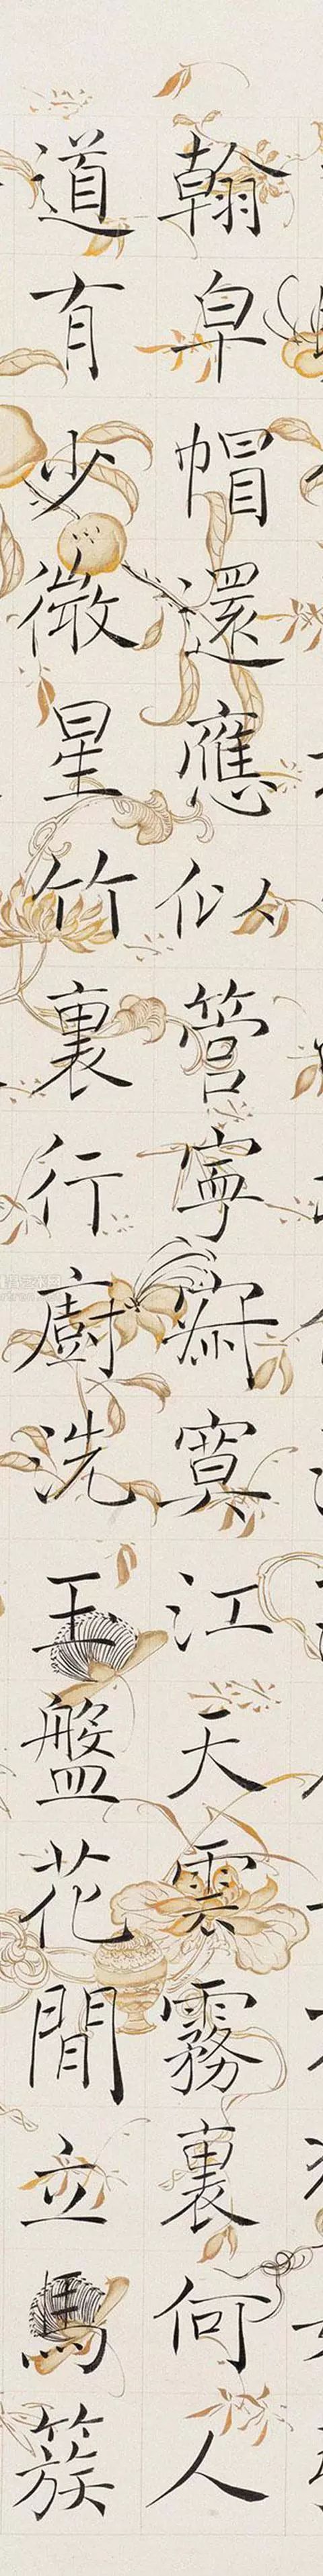 翰皁帽還應似管寧寂寞江天雲霧裏何人
道有少微星竹裏行廚洗玉盤花間立馬簇